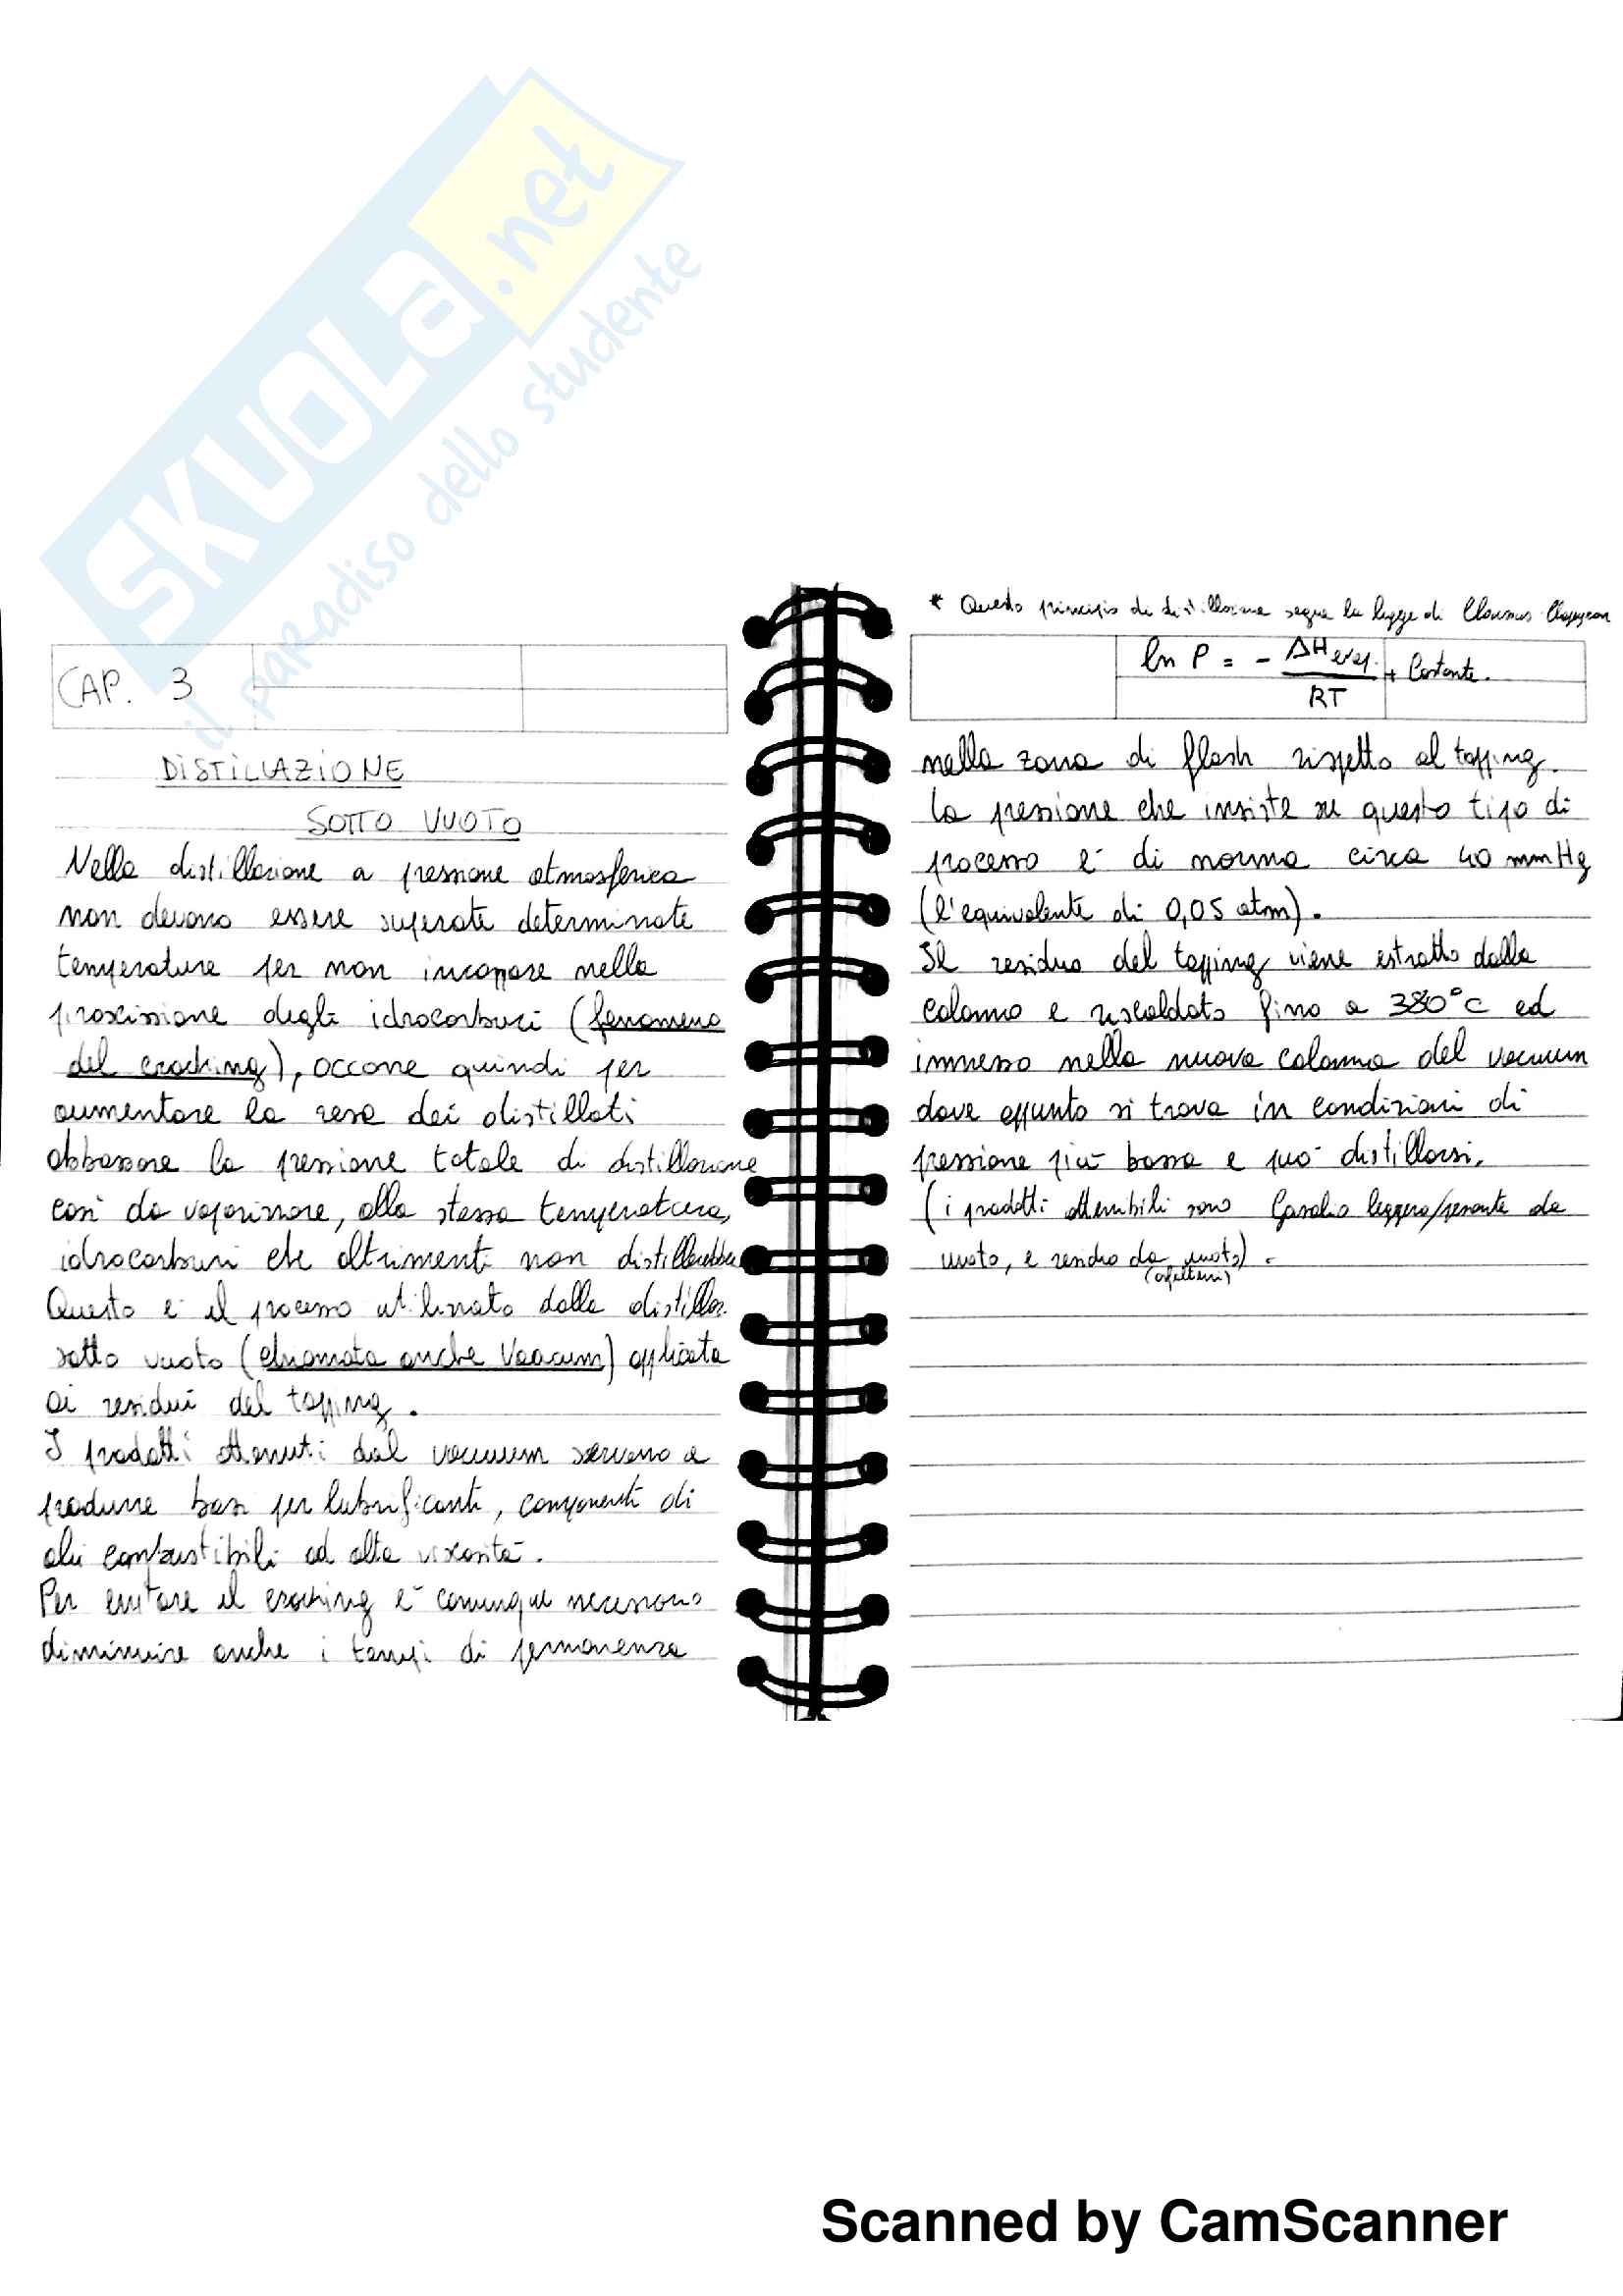 SKUOLA.net
il paradiso dello studente
CAP. 3
DISTILLAZIONE
SOTTO VUOTO
Nella distillazione a pressione atmosferica
non devono essere superate determinate
temperature per non incappare nella
piroscissione degli idrocarburi (fenomeno
del cracking), occorre quindi per
aumentare la resa dei distillati
abbassare la pressione totale di distillazione
così da vaporizzare, alla stessa temperatura,
idrocarburi che altrimenti non distillerebbero
Questo è il processo utilizzato dalla distillaz.
sotto vuoto (chiamata anche Vacuum) applicata
ai residui del topping.
I prodotti ottenuti dal vacuum servono a
produrre basi per lubrificanti, componenti di
olii combustibili ad alta viscosità.
Per evitare il cracking è comunque necessario
diminuire anche i tempi di permanenza
* Questo principio di distillazione segue la legge di Clausius Clapeyron
ln P = - ΔHevap. / RT + Costante.
nella zona di flash rispetto al topping.
La pressione che insiste su questo tipo di
processo è di norma circa 40 mmHg
(l'equivalente di 0,05 atm).
Il residuo del topping viene estratto dalla
colonna e riscaldato fino a 380°C ed
immesso nella nuova colonna del vacuum
dove appunto si trova in condizioni di
pressione più bassa e può distillarsi.
(i prodotti ottenibili sono Gasolio leggero/pesante da
vuoto, e residuo da vuoto).
(asfalteni)
Scanned by CamScanner